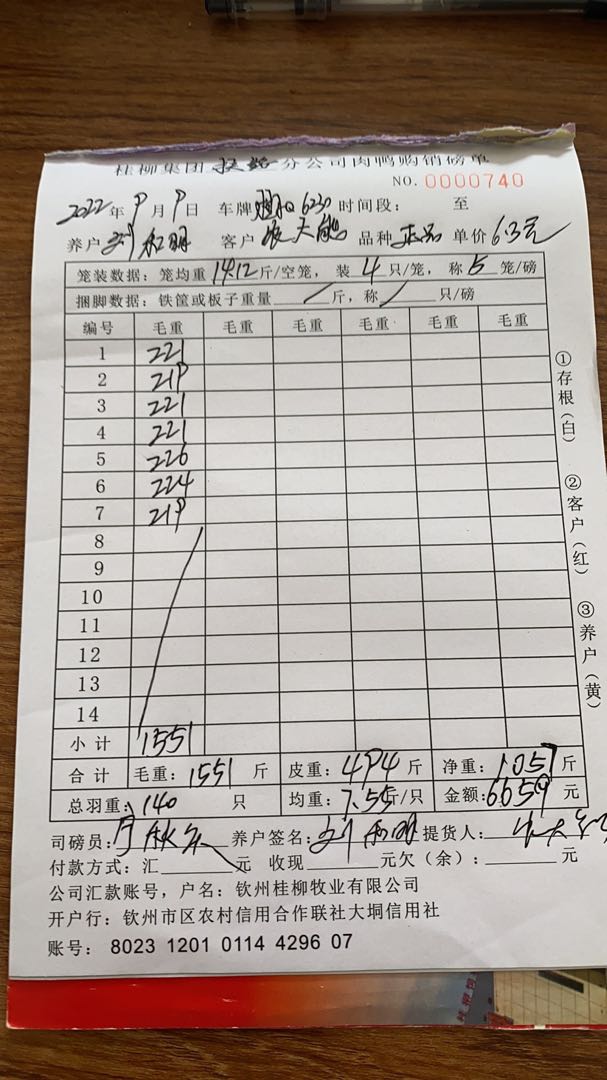 桂柳集团 分公司肉鸭购销磅单
NO. 0000740
2022年9月9日 车牌 6230 时间段： 至
养户 刘和明 客户 张天能 品种 正品 单价 6.3元
笼装数据：笼均重 14.12 斤/空笼，装 4 只/笼，称 5 笼/磅
捆脚数据：铁筐或板子重量 / 斤，称 / 只/磅
编号 毛重 毛重 毛重 毛重 毛重 毛重
1 221
2 219
3 221
4 221
5 226
6 224
7 219
8
9
10
11
12
13
14
小计 1551
合计 毛重：1551 斤 皮重：494 斤 净重：1057 斤
总羽重：140 只 均重：7.55 斤/只 金额：6659 元
司磅员： 养户签名：刘和明 提货人：
付款方式：汇 元 收现 元欠（余）： 元
公司汇款账号，户名：钦州桂柳牧业有限公司
开户行：钦州市区农村信用合作联社大垌信用社
账号：8023 1201 0114 4296 07
①存根（白）
②客户（红）
③养户（黄）